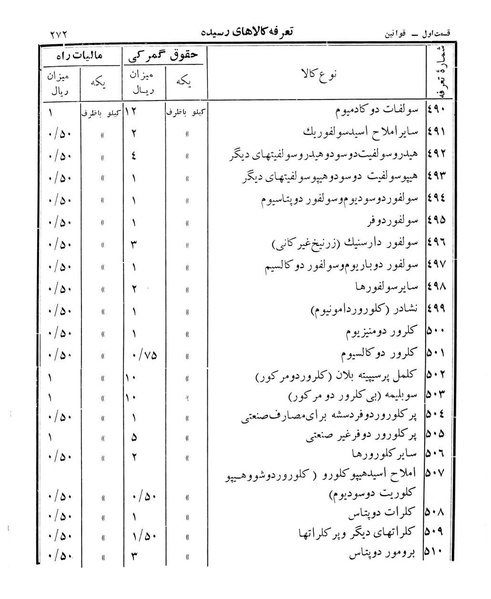 قسمت اول ــ قوانین تعرفه کالاهای رسیده ۲۷۲
شمارهٔ تعرفه نوع کالا حقوق گمرکی مالیات راه
یکه میزان ریال یکه میزان ریال
۴۹۰ سولفات دو کادمیوم کیلو باظرف ۱۲ کیلو باظرف ۱
۴۹۱ سایر املاح اسید سولفوریك » ۲ » ۰/۵۰
۴۹۲ هیدروسولفیت دوسود و هیدروسولفیتهای دیگر » ۴ » ۰/۵۰
۴۹۳ هیپوسولفیت دوسود و هیپوسولفیتهای دیگر » ۱ » ۰/۵۰
۴۹۴ سولفور دوسودیوم و سولفور دوپتاسیوم » ۱ » ۰/۵۰
۴۹۵ سولفور دوفر » ۱ » ۰/۵۰
۴۹۶ سولفور دارسنیك (زرنیخ غیر کانی) » ۳ » ۰/۵۰
۴۹۷ سولفور دوباریوم و سولفور دو کالسیم » ۱ » ۰/۵۰
۴۹۸ سایر سولفورها » ۲ » ۰/۵۰
۴۹۹ نشادر (کلورور دامونیوم) » ۱ » ۰/۵۰
۵۰۰ کلرور دومنیزیوم » ۱ » ۰/۵۰
۵۰۱ کلرور دو کالسیوم » ۰/۷۵ » ۰/۵۰
۵۰۲ کلمل پرسیپیته بلان (کلرور دومرکور) » ۱۰ » ۱
۵۰۳ سوبلیمه (بی کلرور دو مرکور) » ۱۰ » ۱
۵۰۴ پرکلورور دوفر دسشه برای مصارف صنعتی » ۱ » ۰/۵۰
۵۰۵ پرکلورور دوفر غیر صنعتی » ۵ » ۱
۵۰۶ سایر کلورورها » ۲ » ۰/۵۰
۵۰۷ املاح اسید هیپوکلورو ( کلورور دوشو و هیپو
کلوریت دوسودیوم) » ۰/۵۰ » ۰/۵۰
۵۰۸ کلرات دوپتاس » ۱ » ۰/۵۰
۵۰۹ کلراتهای دیگر و پرکلراتها » ۱/۵۰ » ۰/۵۰
۵۱۰ برومور دوپتاس » ۳ » ۰/۵۰